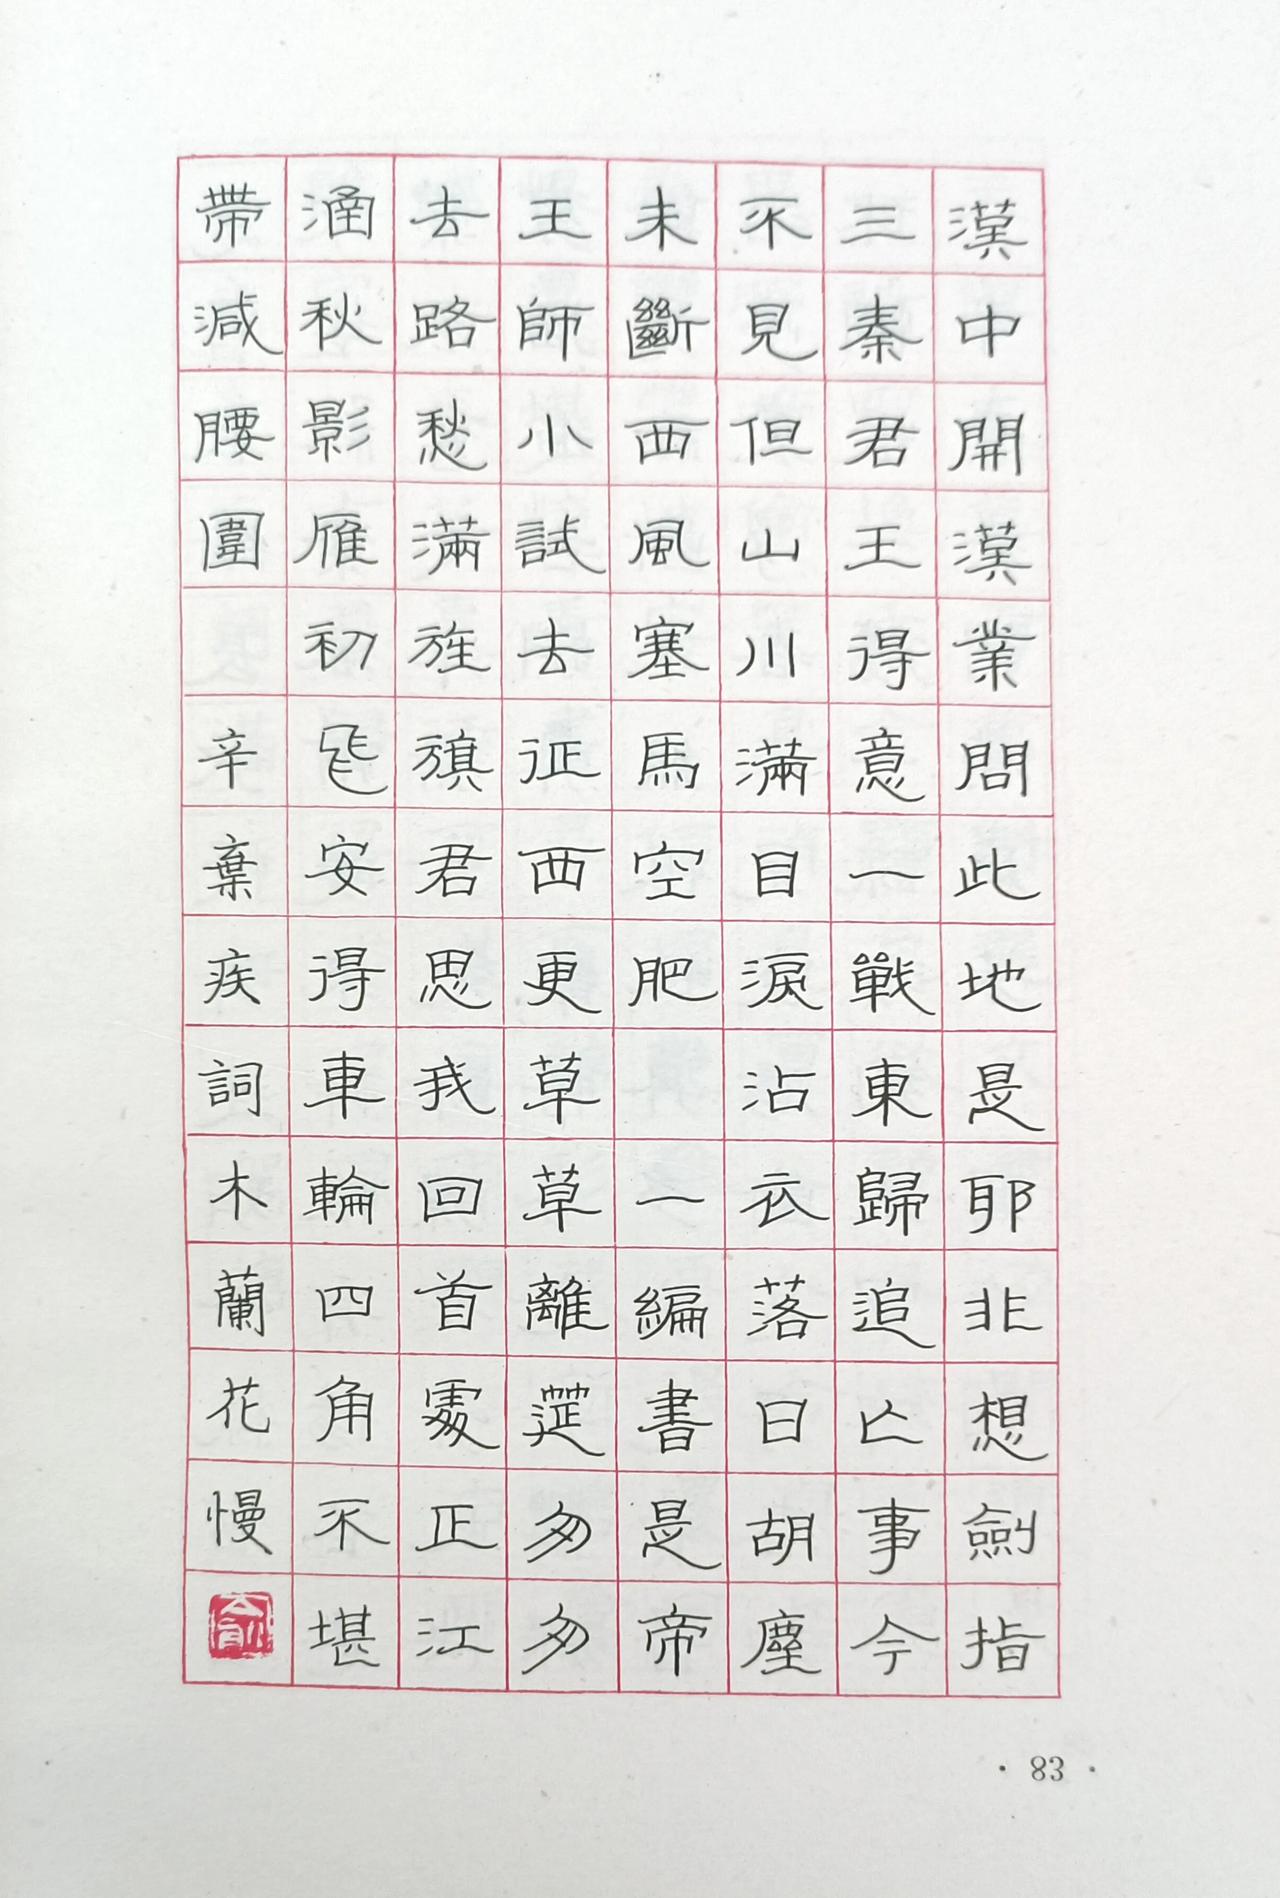 漢中開漢業問此地是耶非想劍指
三秦君王得意一戰東歸追亡事今
不見但山川滿目淚沾衣落日胡塵
未斷西風塞馬空肥 一編書是帝
王師小試去征西更草草離筵匆匆
去路愁滿旌旗君思我回首處正江
涵秋影雁初飛安得車輪四角不堪
帶減腰圍 辛棄疾詞木蘭花慢
俞
· 83 ·